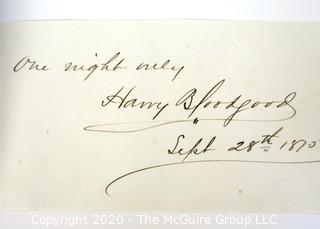 One night only
Harry Bloodgood
Sept 28th 1870
Copyright 2020 - The McGuire Group LLC